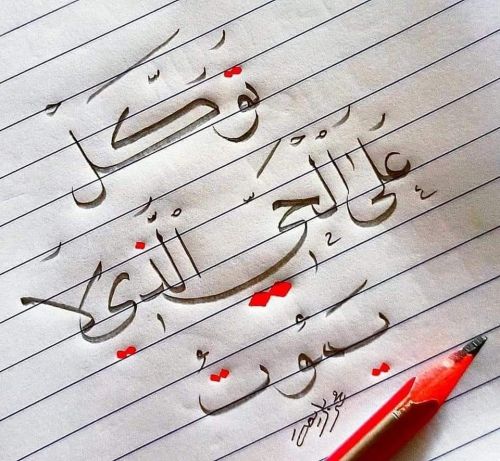 تَوَكَّل
عَلَى الْحَيِّ الَّذِي لَا
يَمُوتُ